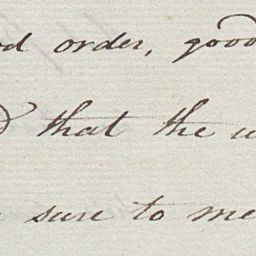 order, good
that the
sure to me